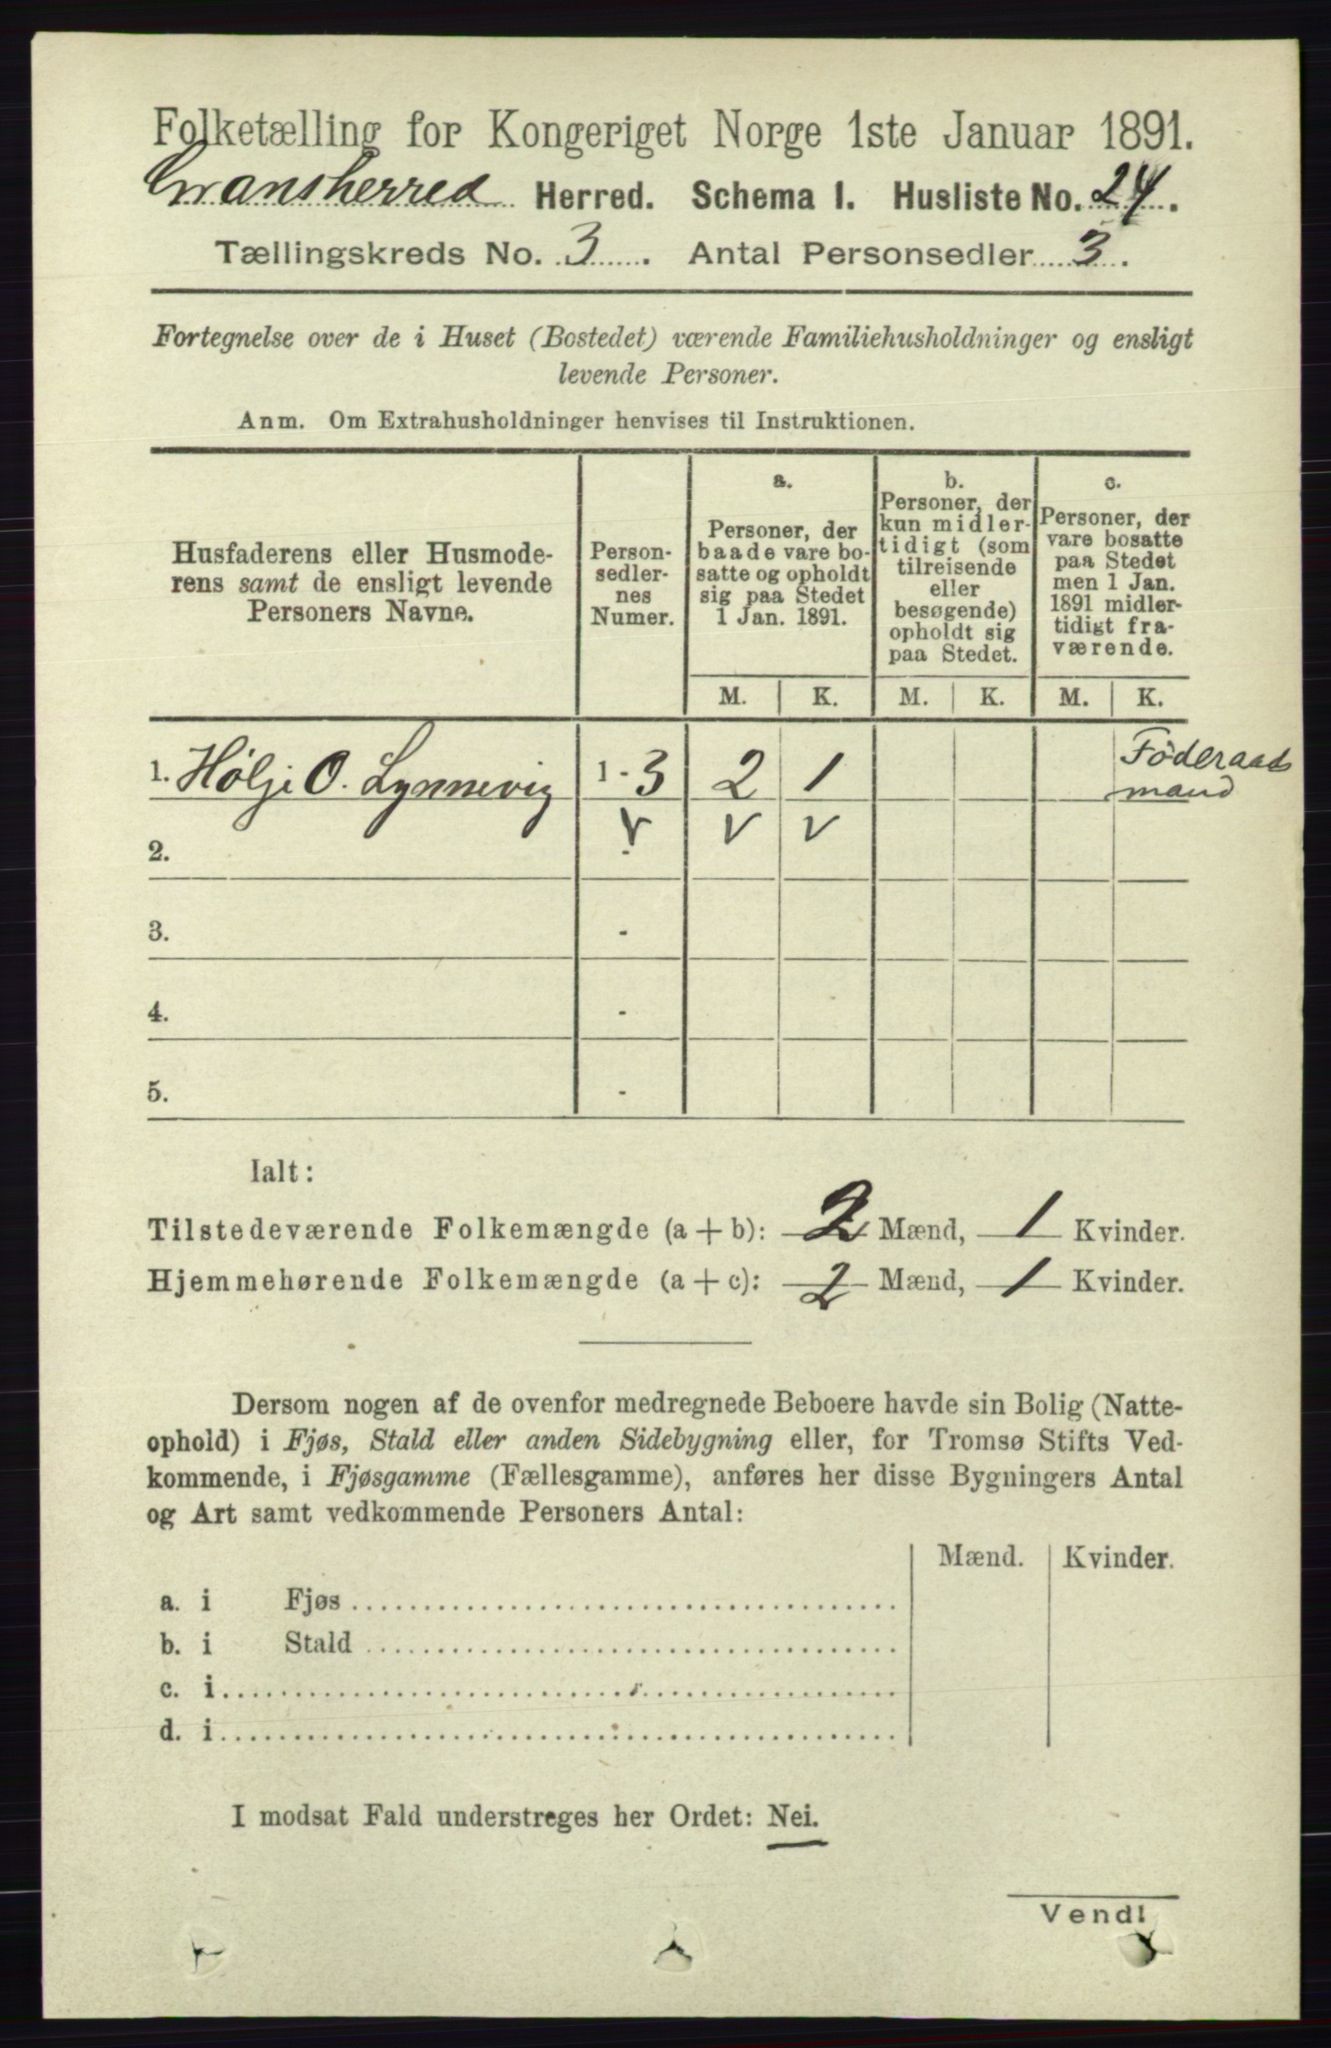 Folketælling for Kongeriget Norge 1ste Januar 1891.
Gransherred Herred. Schema I. Husliste No. 24.
Tællingskreds No. 3. Antal Personsedler 3.
Fortegnelse over de i Huset (Bostedet) værende Familiehusholdninger og ensligt
levende Personer.
Anm. Om Extrahusholdninger henvises til Instruktionen.
Husfaderens eller Husmode-
rens samt de ensligt levende
Personers Navne.
Person-
sedler-
nes
Numer.
a.
Personer, der
baade vare bo-
satte og opholdt
sig paa Stedet
1 Jan. 1891.
b.
Personer, der
kun midler-
tidigt (som
tilreisende
eller
besøgende)
opholdt sig
paa Stedet.
c.
Personer, der
vare bosatte
paa Stedet
men 1 Jan.
1891 midler-
tidigt fra-
værende.
M. K. M. K. M. K.
1. Hølje O. Lynnevig 1 - 3 2 1 Föderaads
mand
2. - V V V
3. -
4. -
5. -
Ialt:
Tilstedeværende Folkemængde (a + b): 2 Mænd, 1 Kvinder.
Hjemmehørende Folkemængde (a + c): 2 Mænd, 1 Kvinder.
Dersom nogen af de ovenfor medregnede Beboere havde sin Bolig (Natte-
ophold) i Fjøs, Stald eller anden Sidebygning eller, for Tromsø Stifts Ved-
kommende, i Fjøsgamme (Fællesgamme), anføres her disse Bygningers Antal
og Art samt vedkommende Personers Antal:
Mænd. Kvinder.
a. i Fjøs
b. i Stald
c. i
d. i
I modsat Fald understreges her Ordet: Nei.
Vend!